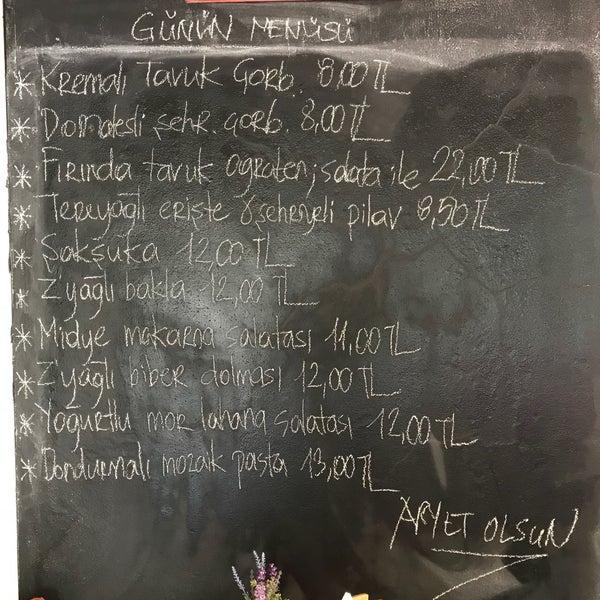 GÜNÜN MENÜSÜ
* Kremalı Tavuk Çorb. 8,00 TL
* Domatesli şehr. çorb. 8,00 TL
* Fırında tavuk ograten, salata ile 22,00 TL
* Tereyağlı erişte / şehriyeli pilav 8,50 TL
* Şakşuka 12,00 TL
* Z'yağlı bakla 12,00 TL
* Midye makarna salatası 11,00 TL
* Z'yağlı biber dolması 12,00 TL
* Yoğurtlu mor lahana salatası 12,00 TL
* Dondurmalı mozaik pasta 13,00 TL
AFİYET OLSUN